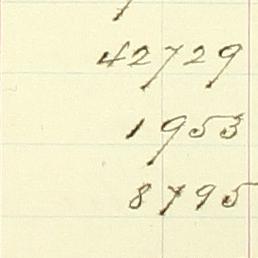 42729
1953
8795